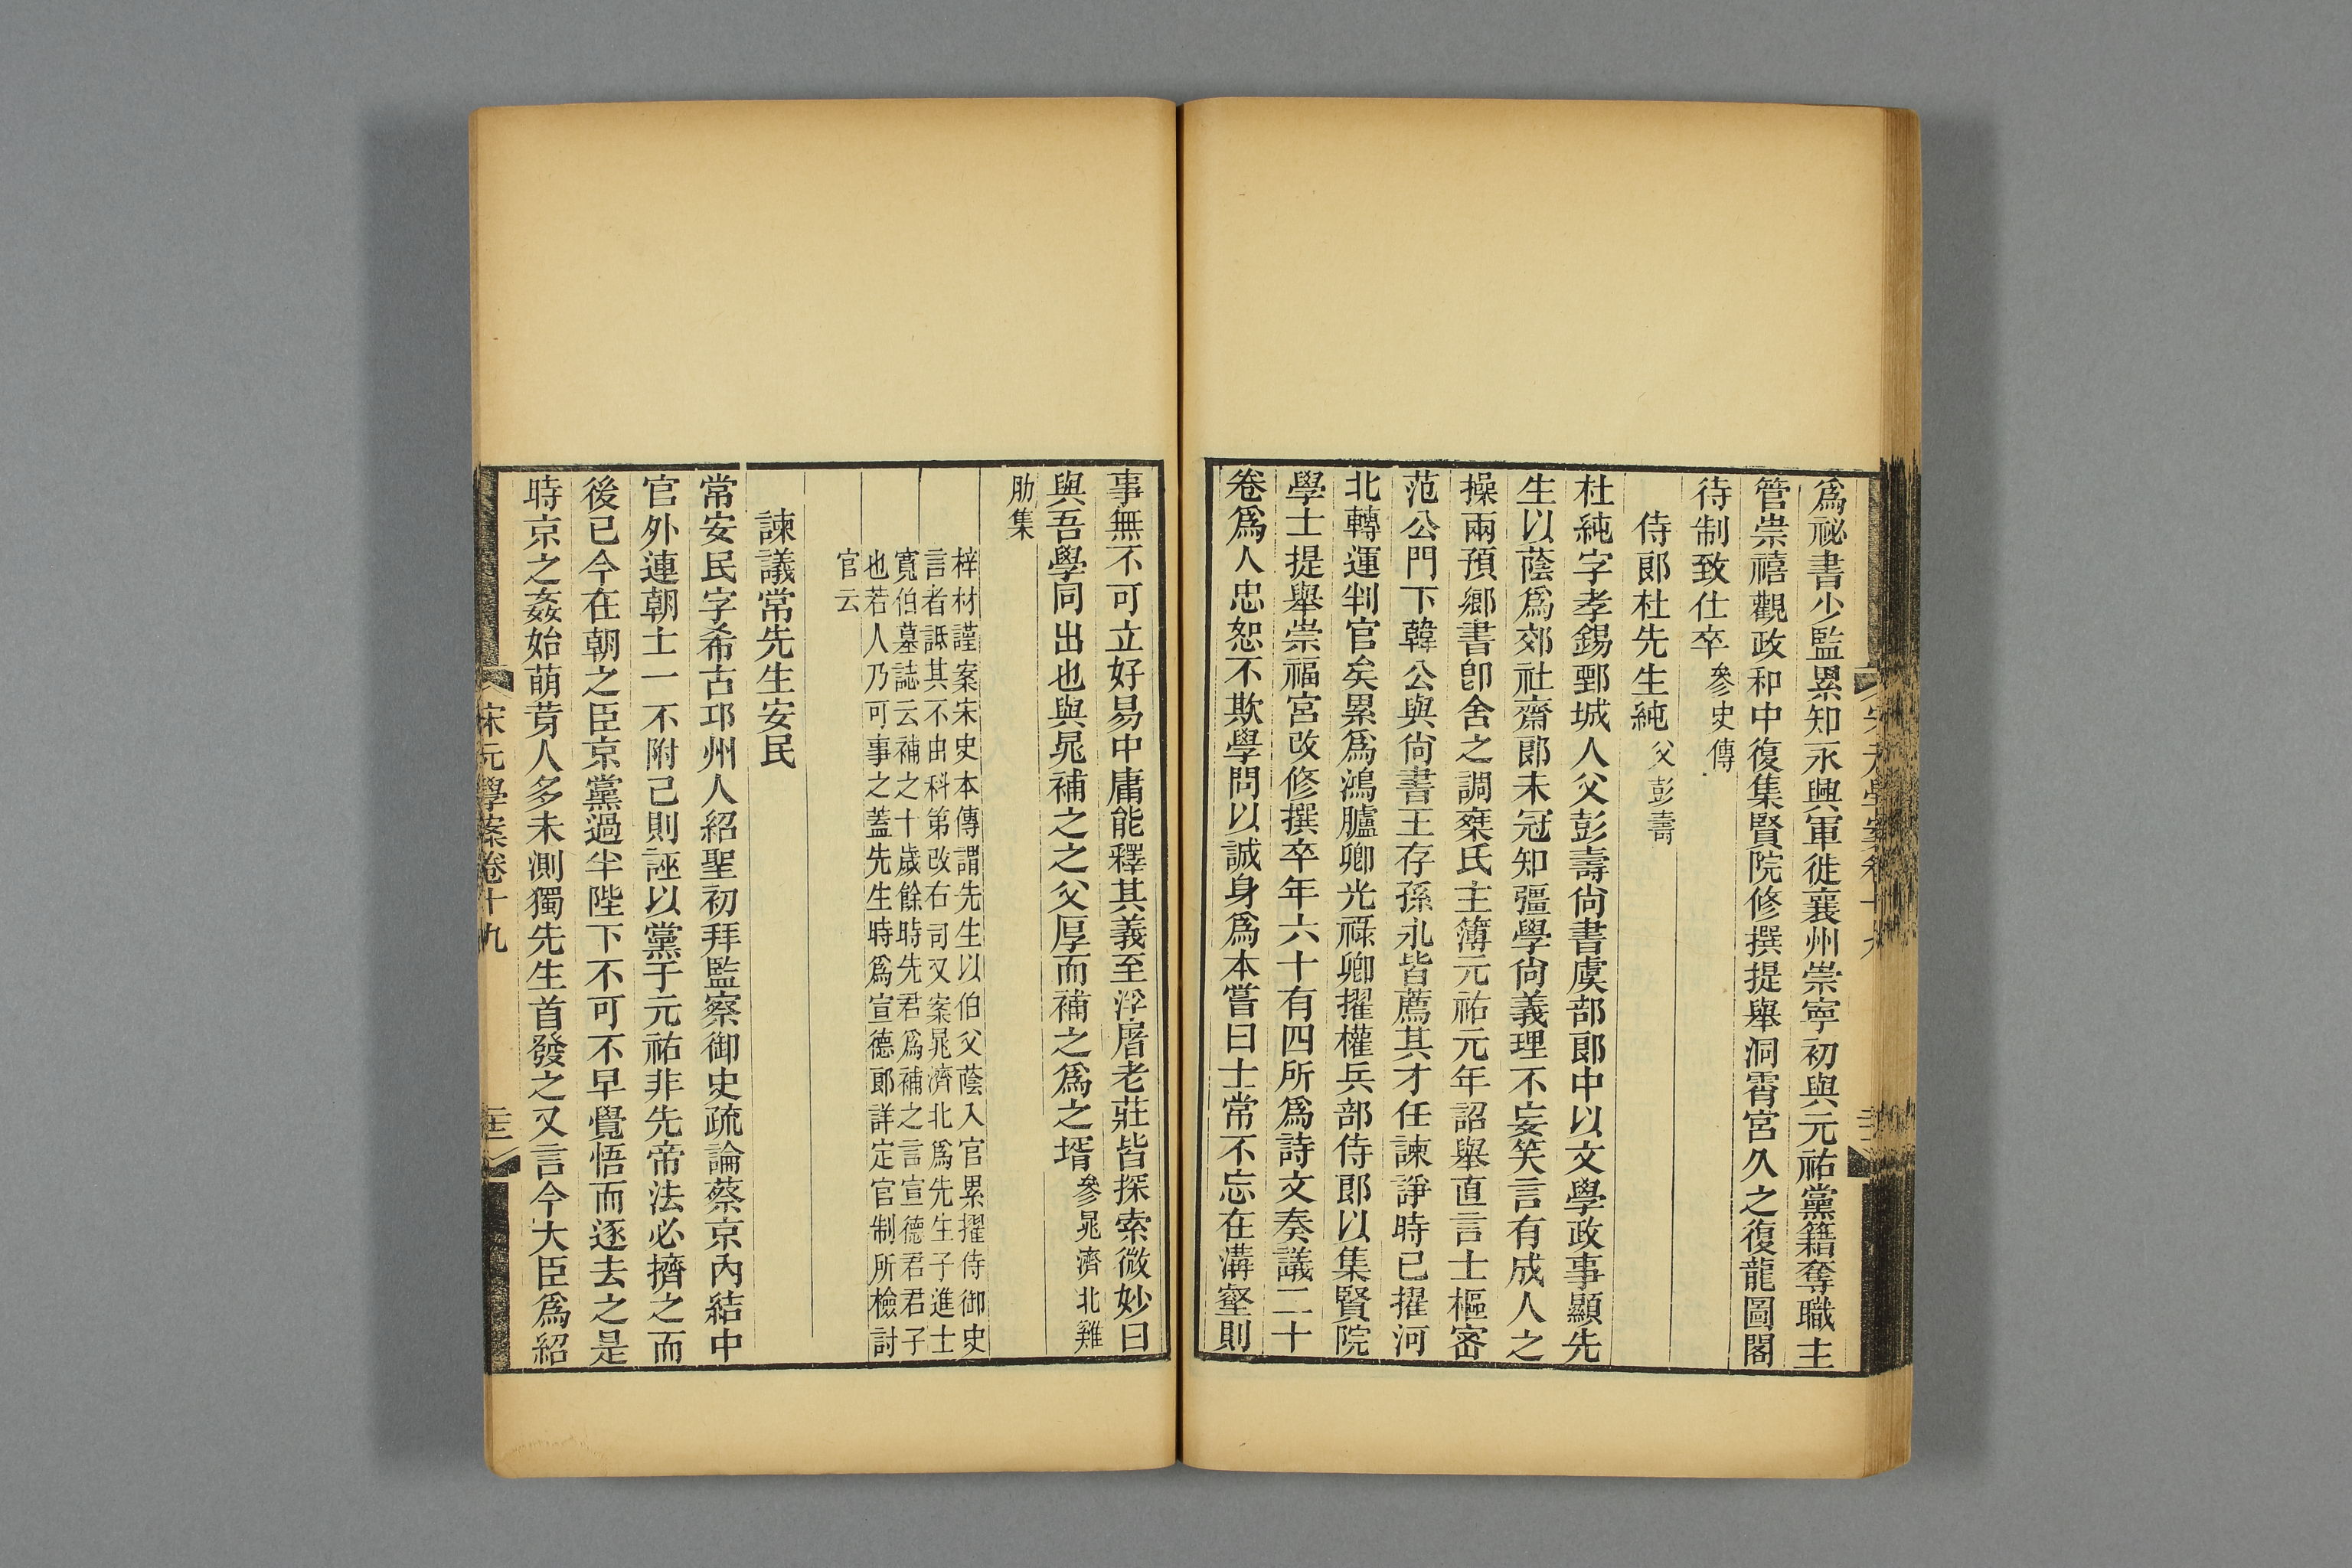 爲祕書少監累知永興軍徙襄州崇寧初與元祐黨籍奪職主
管崇禧觀政和中復集賢院修撰提舉洞霄宮久之復龍圖閣
待制致仕卒參史傳
侍郞杜先生純父彭壽
杜純字孝錫鄄城人父彭壽尙書虞部郞中以文學政事顯先
生以蔭爲郊社齋郞未冠知彊學尙義理不妄笑言有成人之
操兩預鄕書卽舍之調棻氏主簿元祐元年詔舉直言士樞密
范公門下韓公與尙書王存孫永皆薦其才任諫諍時已擢河
北轉運判官矣累爲鴻臚卿光祿卿擢權兵部侍郞以集賢院
學士提舉崇福宮改修撰卒年六十有四所爲詩文奏議二十
卷爲人忠恕不欺學問以誠身爲本嘗曰士常不忘在溝壑則
事無不可立好易中庸能釋其義至浮屠老莊皆探索微妙曰
與吾學同出也與晁補之之父厚而補之爲之壻參晁濟北雞
肋集
梓材謹案宋史本傳謂先生以伯父蔭入官累擢侍御史
言者詆其不由科第改右司又案晁濟北爲先生子進士
寬伯墓誌云補之十歲餘時先君爲補之言宣德君君子
也若人乃可事之蓋先生時爲宣德郞詳定官制所檢討
官云
諫議常先生安民
常安民字希古邛州人紹聖初拜監察御史疏論蔡京內結中
官外連朝士一不附己則誣以黨于元祐非先帝法必擠之而
後已今在朝之臣京黨過半陛下不可不早覺悟而逐去之是
時京之姦始萌芽人多未測獨先生首發之又言今大臣爲紹
宋元學案卷十九